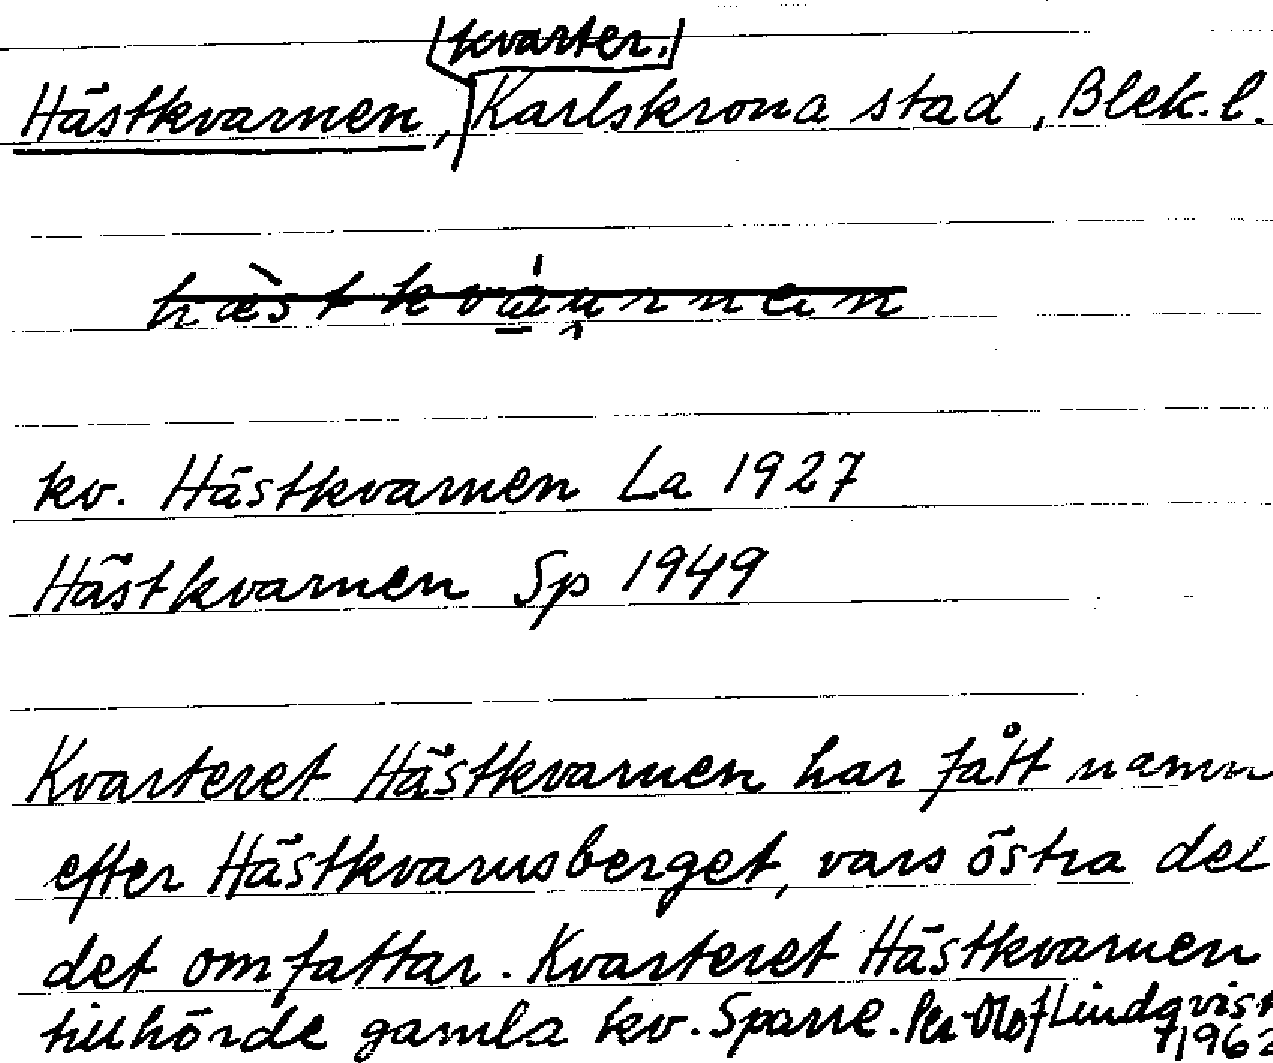 kvarter.
Hästkvarnen, Karlskrona stad, Blek. l.
kv. Hästkvarnen La 1927
Hästkvarnen Sp 1949
Kvarteret Hästkvarnen har fått namn
efter Hästkvarnsberget, vars östra del
det omfattar. Kvarteret Hästkvarnen
tillhörde gamla kv. Sparre. Per-Olof Lindqvist